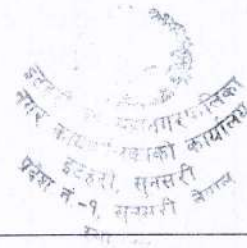 इटहरी उपमहानगरपालिका
नगर कार्यपालिकाको कार्यालय
इटहरी, सुनसरी
प्रदेश नं.-१, सुनसरी नेपाल